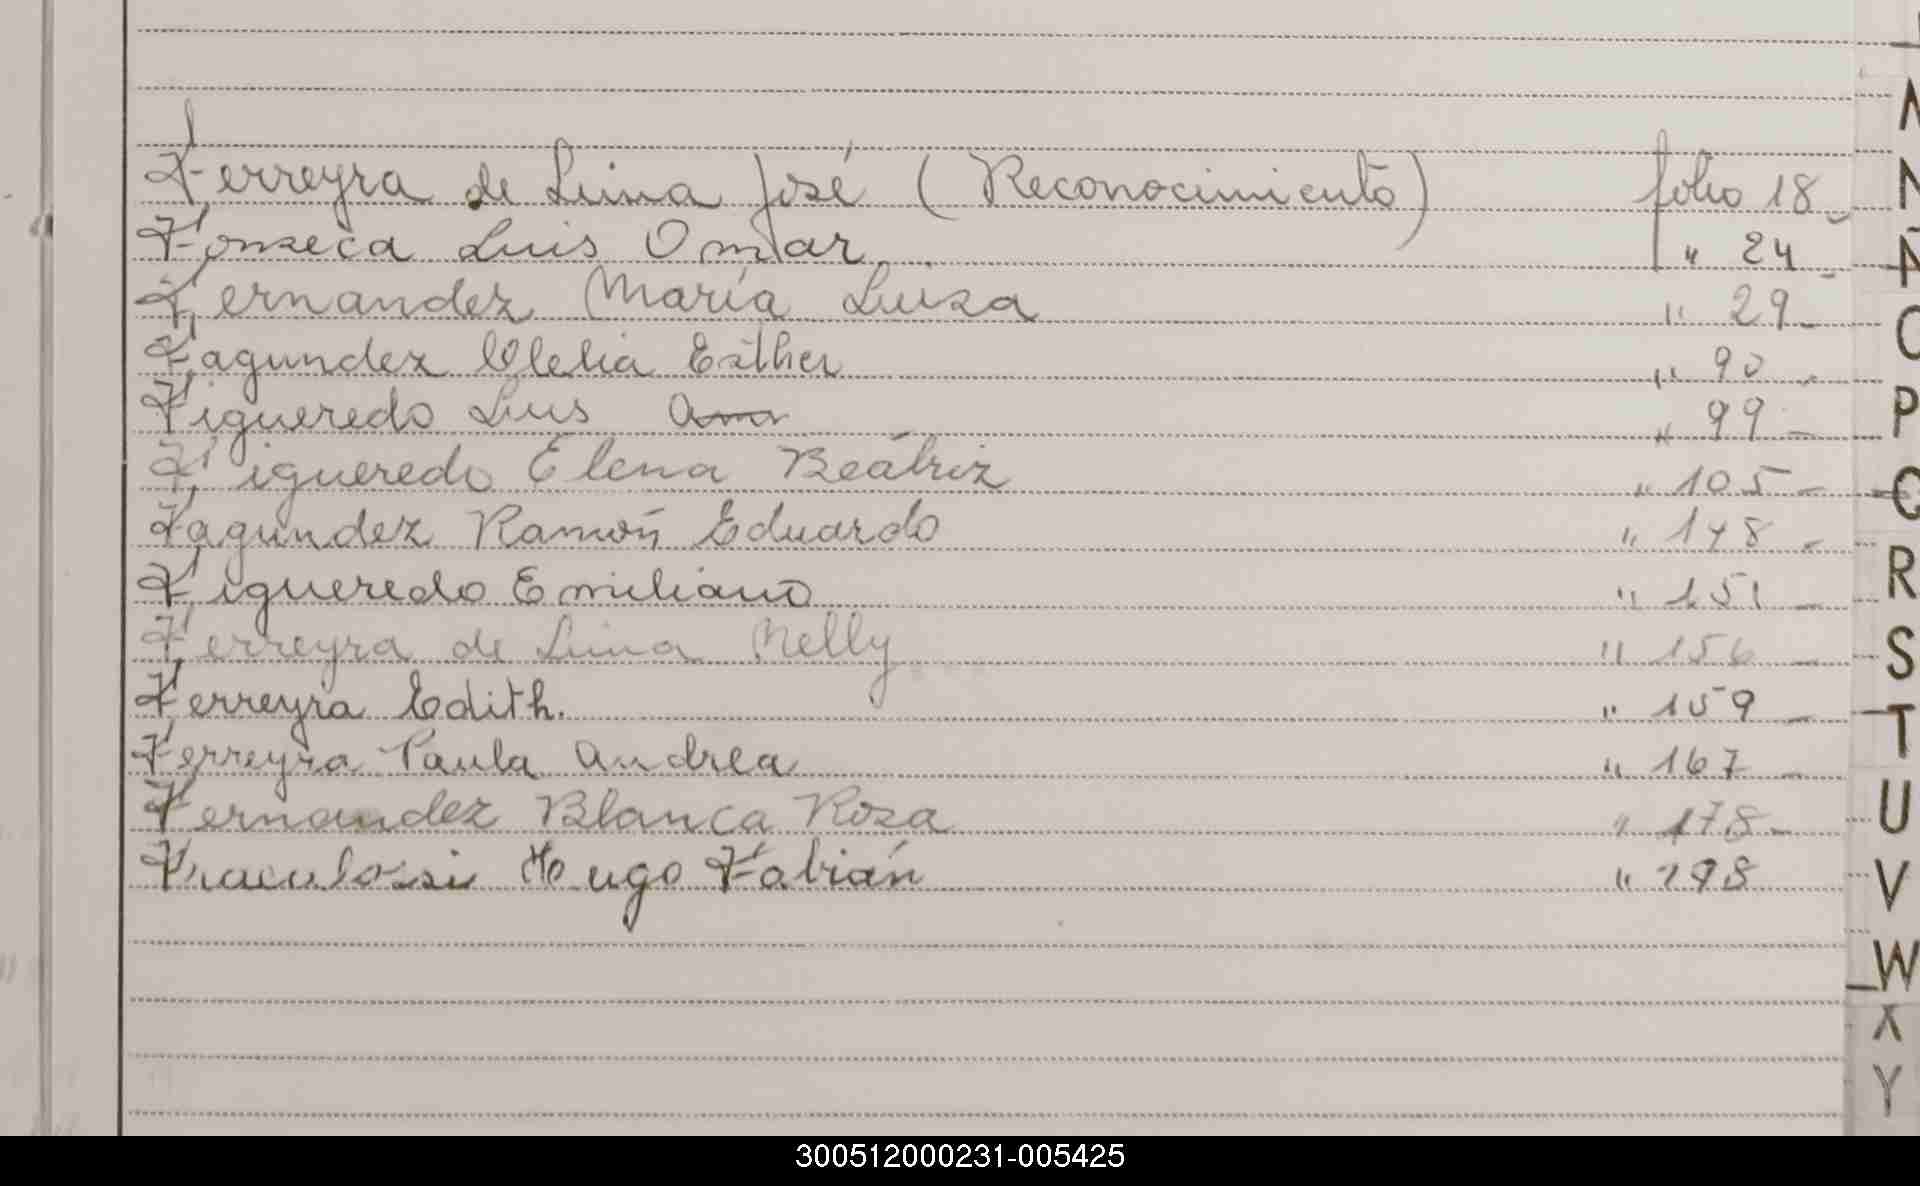 Ferreyra de Lima José (Reconocimiento) folio 18-
Fonseca Luis Omar " 24-
Fernandez María Luisa " 29-
Fagundez Clelia Esther " 90-
Figueredo Luis " 99-
Figueredo Elena Beátriz " 105-
Fagundez Ramón Eduardo " 148-
Figueredo Emiliano " 151-
Ferreyra de Lima Nelly " 156-
Ferreyra Edith. " 159-
Ferreyra Paula Andrea " 167-
Fernandez Blanca Rosa " 178-
Hugo Fabián " 198
N
N
Ñ
O
P
Q
R
S
T
U
V
W
X
Y
300512000231-005425